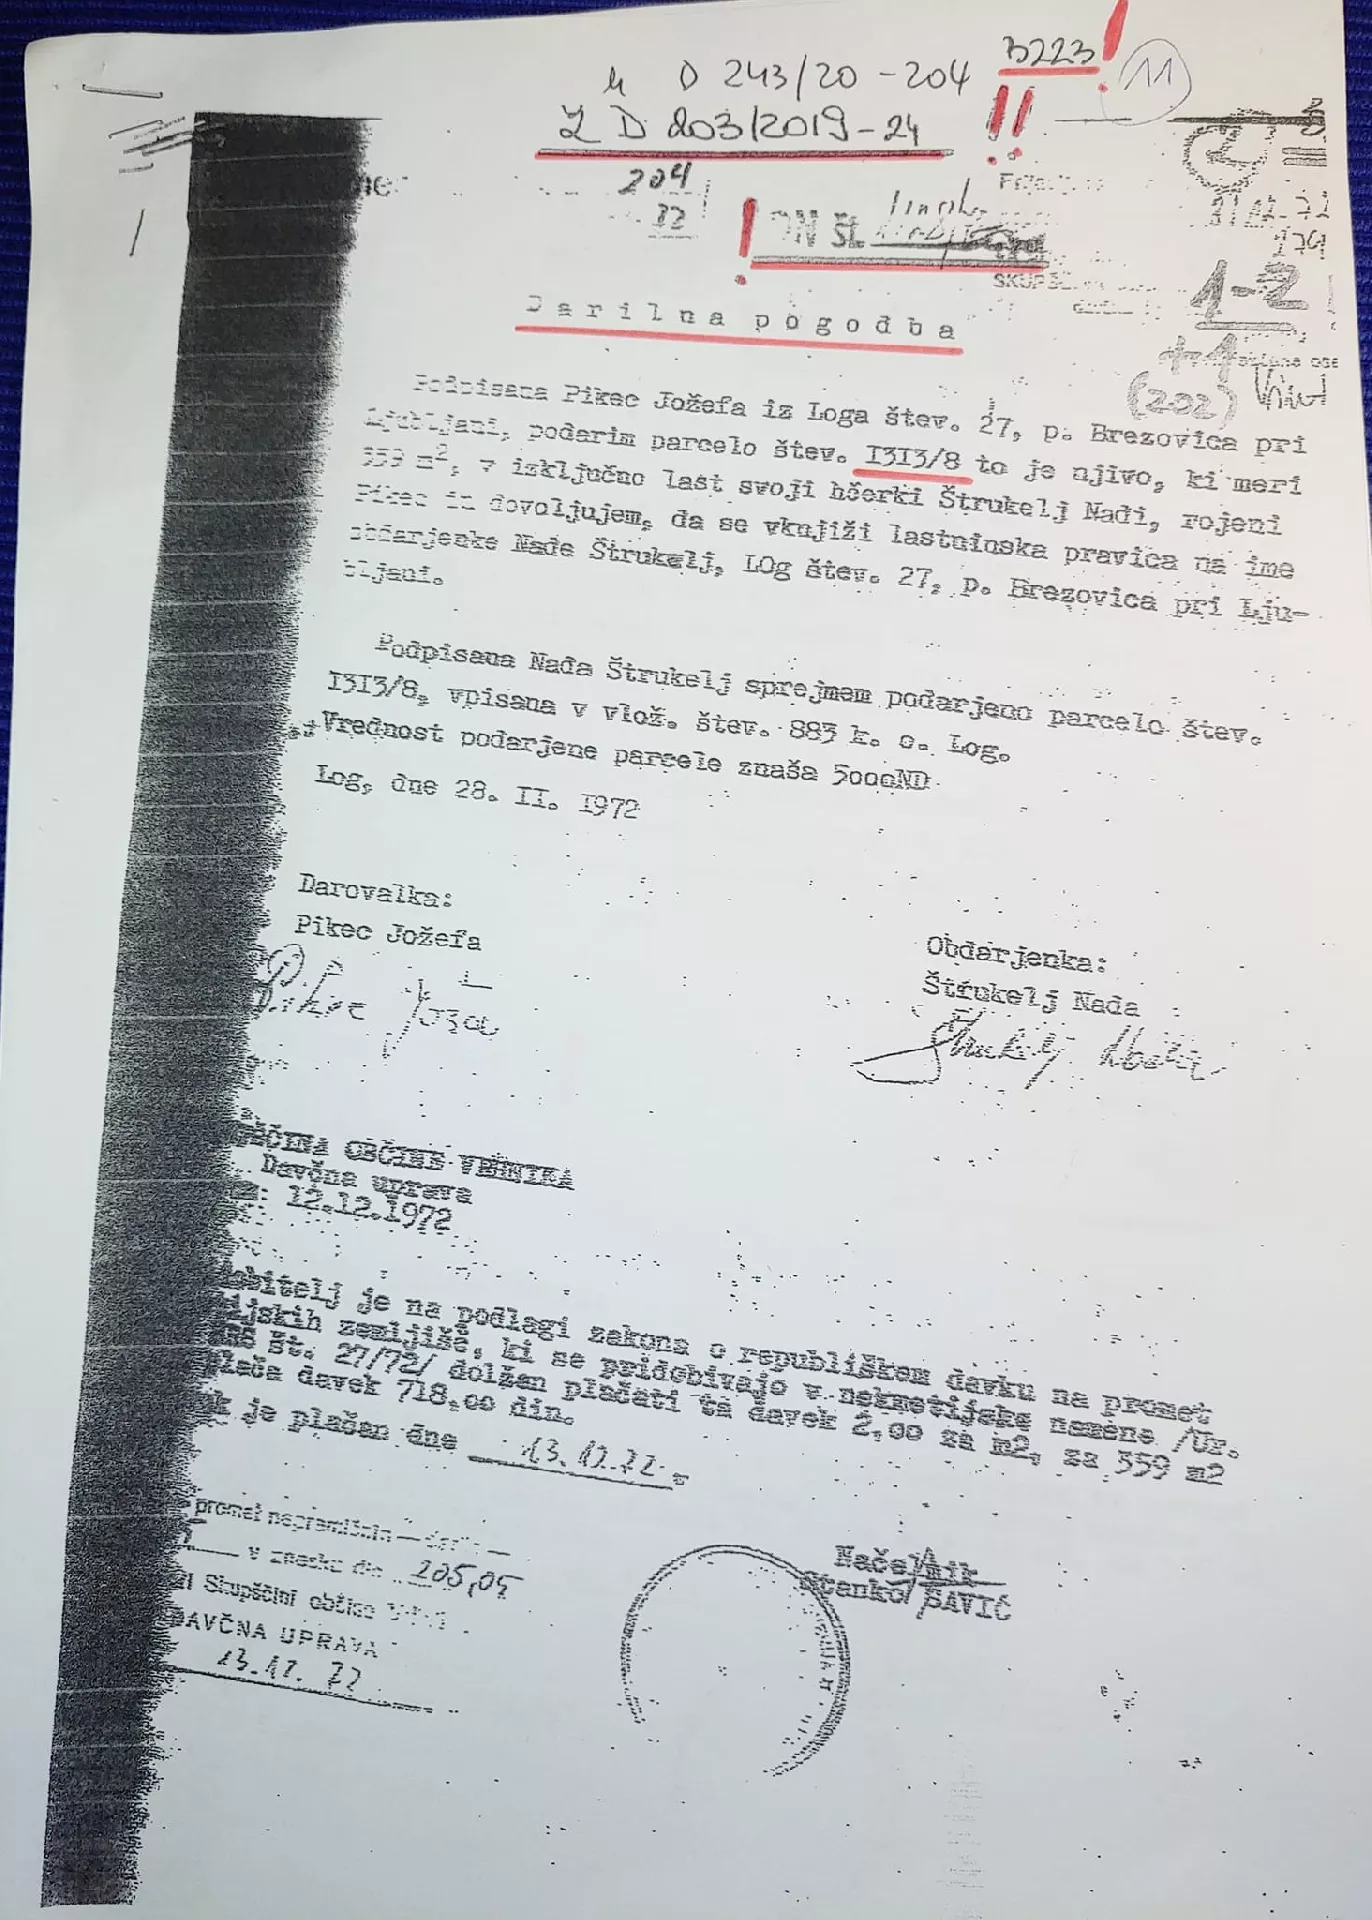 D 243/20 - 204 B223!
11
Z D 203/2019-24 !!
204
72
! DN ŠT.
1-2
+1
(202)
Darilna pogodba
Podpisana Pikec Jožefa iz Loga štev. 27, p. Brezovica pri
Ljubljani, podarim parcelo štev. I3I3/8 to je njivo, ki meri
359 m2, v izključno last svoji hčerki Štrukelj Nadi, rojeni
Pikec in dovoljujem, da se vknjiži lastninska pravica na ime
obdarjenke Nade Štrukelj, LOg štev. 27, p. Brezovica pri Lju-
bljani.
Podpisana Nada Štrukelj sprejmem podarjeno parcelo štev.
I3I3/8, vpisana v vlož. štev. 883 k. o. Log.
Vrednost podarjene parcele znaša 5000ND
Log, dne 28. II. I972
Darovalka:
Pikec Jožefa
Obdarjenka:
Štrukelj Nada
Pikec Joža
Štrukelj Nada
OBČINE VRHNIKA
Davčna uprava
12.12.1972
je na podlagi zakona o republiškem davku na promet
zemljišč, ki se pridobivajo v nekmetijske namene /Ur.
št. 27/72/ dolžan plačati ta davek 2,00 za m2, za 359 m2
davek 718,00 din.
je plačan dne 13.12.72.
promet nepremičnin
v znesku din 205,05
Skupščini občine
DAVČNA UPRAVA
13.12.72
Načelnik
Stanko SAVIČ